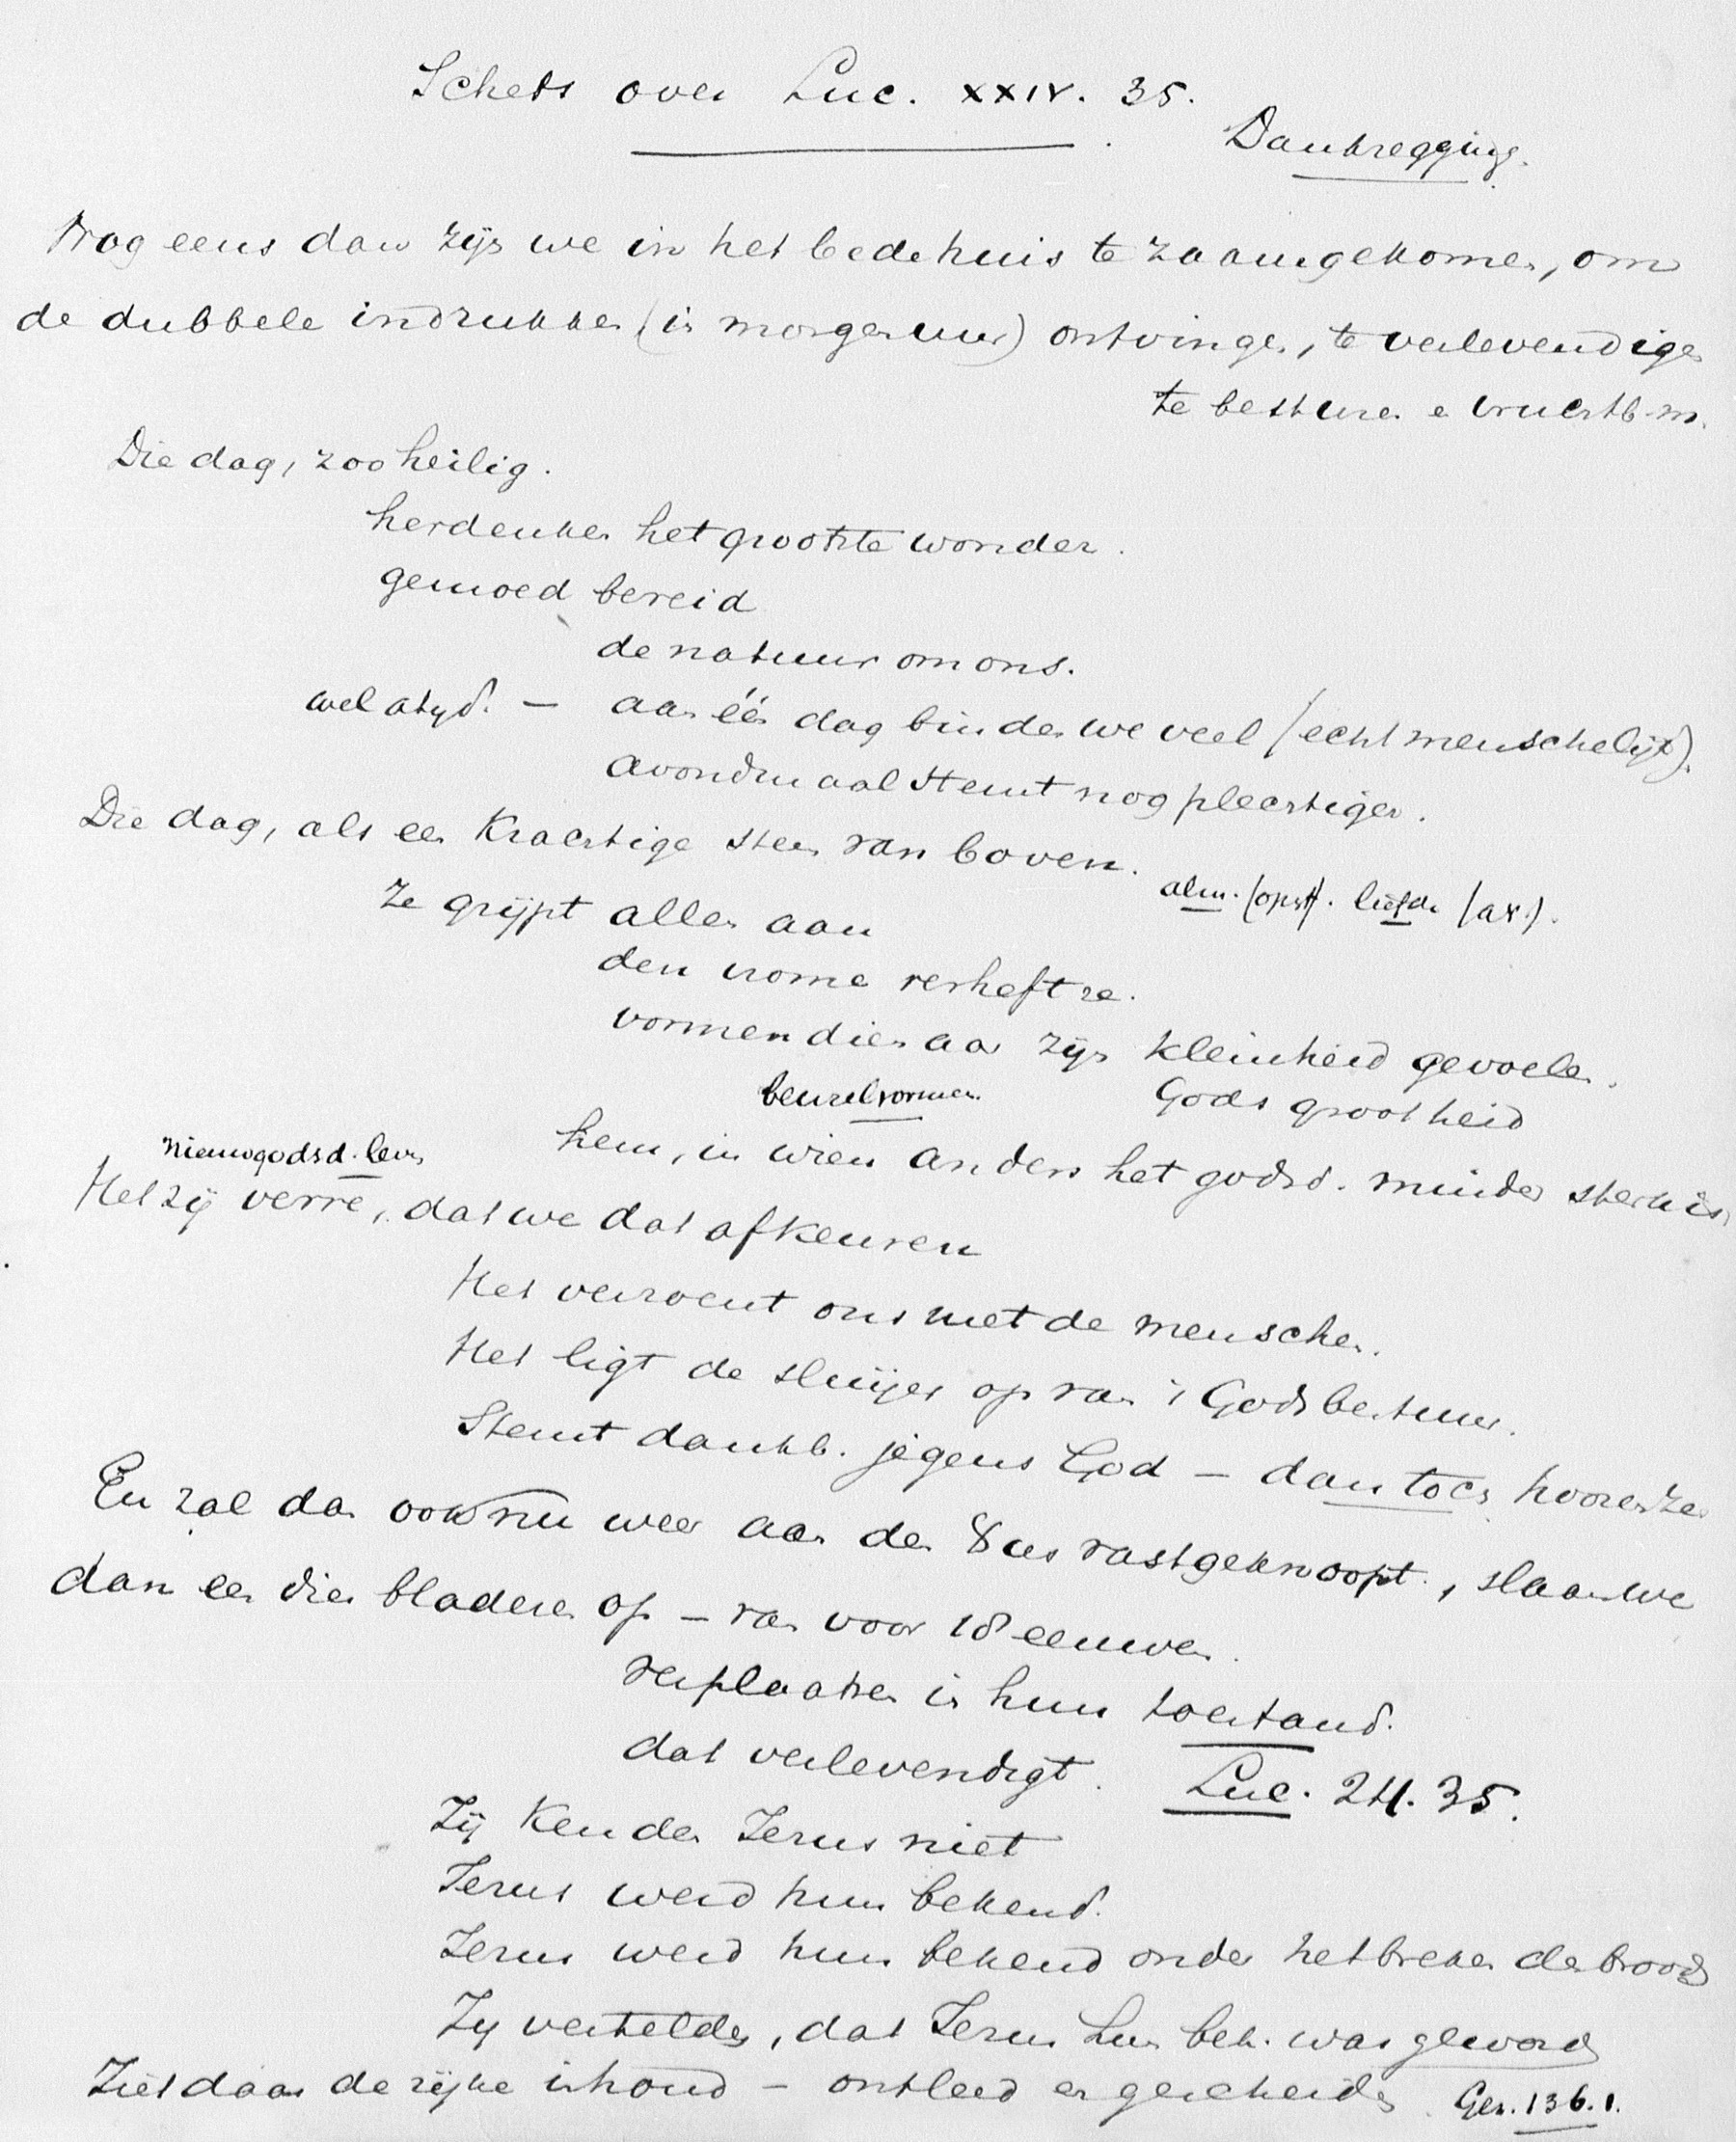 Schets over Luc. XXIV. 35.
Dankzegging.
Nog eens dan zijn we in het bedehuis te zaamgekomen, om
de dubbele indrukken (in morgenuur) ontvingen, te verlevendigen
te besturen e vruchtb. m.
Die dag, zoo heilig.
herdenken het grootste wonder.
gemoed bereid
de natuur om ons.
wel altyd. — aan één dag binden we veel (echt menschelijk).
avondmaal stemt nog plechtiger.
Die dag, als een Krachtige stem van boven.
alm. (opst). liefde (av.).
Ze grijpt allen aan
den vrome verheft ze.
vormendienaar zijn kleinheid gevoelen.
beuzelvormen. Gods grootheid
hem, in wien anders het godsd. minder sterk is,
nieuw godsd. leven
Het zij verre, dat we dat afkeuren
Het verzoent ons met de menschen.
Het ligt de sluijer op van 's Godsbestuur.
Stemt dankb. jegens God — dan toch hooren ze
En zal dan ook nu weer aan den vastgeknoopt., slaan we
dan een dier bladeren op — van voor 18 eeuwen.
verplaatsen in hun toestand.
dat verlevendigt. Luc. 24. 35.
Zij Kenden Jezus niet
Jezus werd hun bekend.
Jezus werd hun bekend onder het breken des broods
Zy vertelden, dat Jezus hun bek. was geword
Ziet daar de rijke inhoud — ontleed en gescheiden Gez. 136. 1.